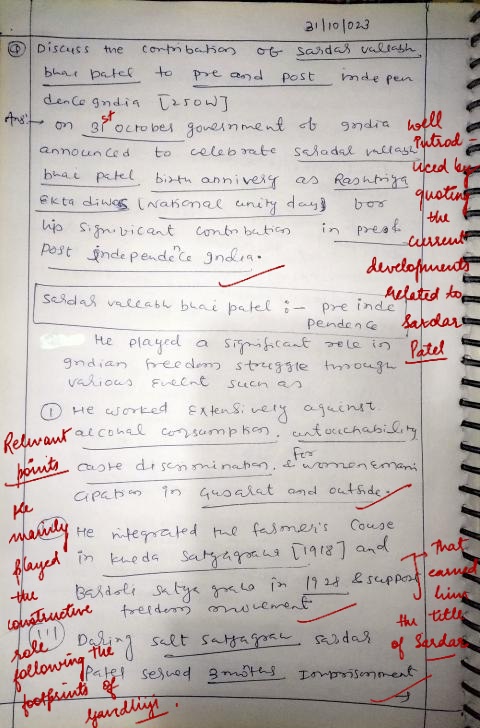 31/10/023
Q Discuss the contribution of Sardar vallabh
bhai patel to pre and post indepen
dence India [250W]
Ans:- on 31st october government of India
announced to celebrate saradal vallabh
bhai patel birth annivery as Rashtriya
EKta diwas (National unity day) for
his significant contribution in pre &
post independence India.
well
introd -
uced by
quoting
the
current
developments
related to
Sardar
Patel
Sardar vallabh bhai patel :- pre inde
pendence
He played a significant role in
Indian freedom struggle through
various event such as
(i) He worked Extensively against
alcohal consumption, untouchability
caste discrimination, & for women emani
cipation in Gujarat and outside.
Relevant
points
He
mainly
played
the
constructive
role
following the
footprints of
Gandhiji.
(ii) He integrated the farmer's Couse
in kheda Satyagraha [1918] and
Bardoli satya graha in 1928 & support
freedom movement
That
earned
him
the title
of Sardar
(iii) Daring salt satyagrah sardar
Patel served 3 moths Imprisonment